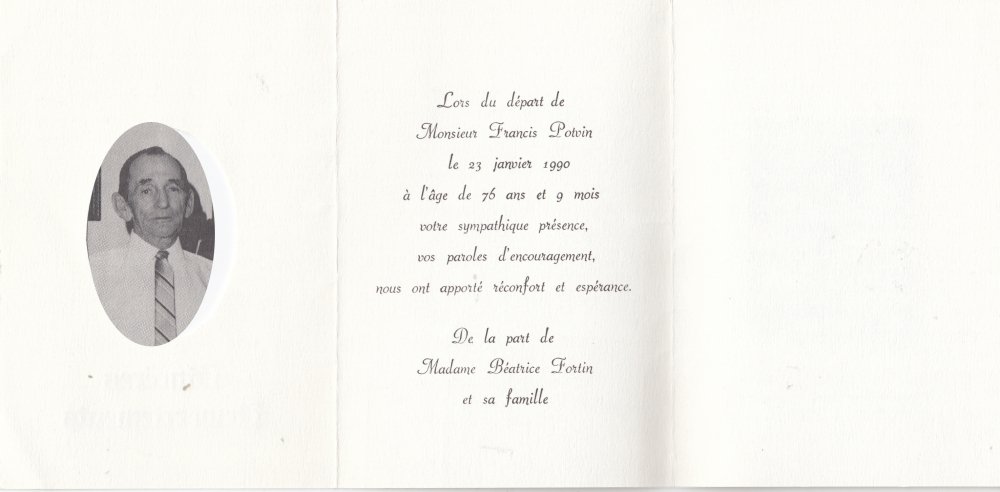 Lors du départ de
Monsieur Francis Potvin
le 23 janvier 1990
à l'âge de 76 ans et 9 mois
votre sympathique présence,
vos paroles d'encouragement,
nous ont apporté réconfort et espérance.
De la part de
Madame Béatrice Fortin
et sa famille